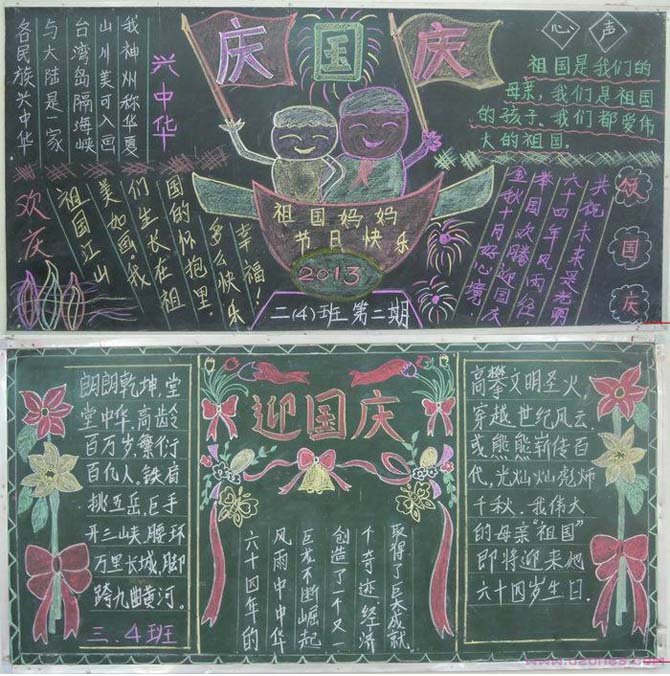 庆国庆
心声
祖国是我们的
母亲,我们是祖国
的孩子。我们都爱伟
大的祖国.
兴中华
我神州称华夏
山川美可入画
台湾岛隔海峡
与大陆是一家
各民族兴中华
欢庆
祖国江山
美如画。我
们生长在祖
国的怀抱里,
多么快乐
幸福!
祖国妈妈
节日快乐
2013
二(4)班 第二期
颂国庆
共祝未来是光明
六十四年风雨征
举国欢腾迎国庆
金秋十月好心境
朗朗乾坤,堂
堂中华,高龄
百万岁,繁衍
百亿人,铁肩
挑五岳,巨手
开三峡,腰环
万里长城,脚
跨九曲黄河。
三.4班
迎国庆
六十四年的
风雨中中华
巨龙不断崛起
创造了一个又一
个奇迹,经济
取得了巨大成就.
高攀文明圣火,
穿越世纪风云.
或熊熊崭传百
代,光灿灿彪炳
千秋.我伟大
的母亲"祖国"
即将迎来她
六十四岁生日.